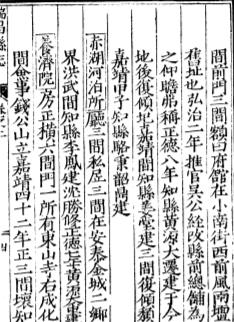 間前門三間額曰府館在小南街西前風雨壇
舊址也弘治二年推官吳公經改縣前總舖為
之仲瞻舖稱正德八年知縣黃源大遷建于今
地後復傾圮嘉靖間知縣建三間復傾頹
嘉靖甲子知縣駱秉韶再建
赤湖河泊所廳三間私居三間在安泰金城二鄉
界洪武間知縣李鳳建沈勝修正德七年黃源重建
養濟院房正橫六間門一所有東山寺右成化
間僉事錢公山立嘉靖四十二年正三間壞知